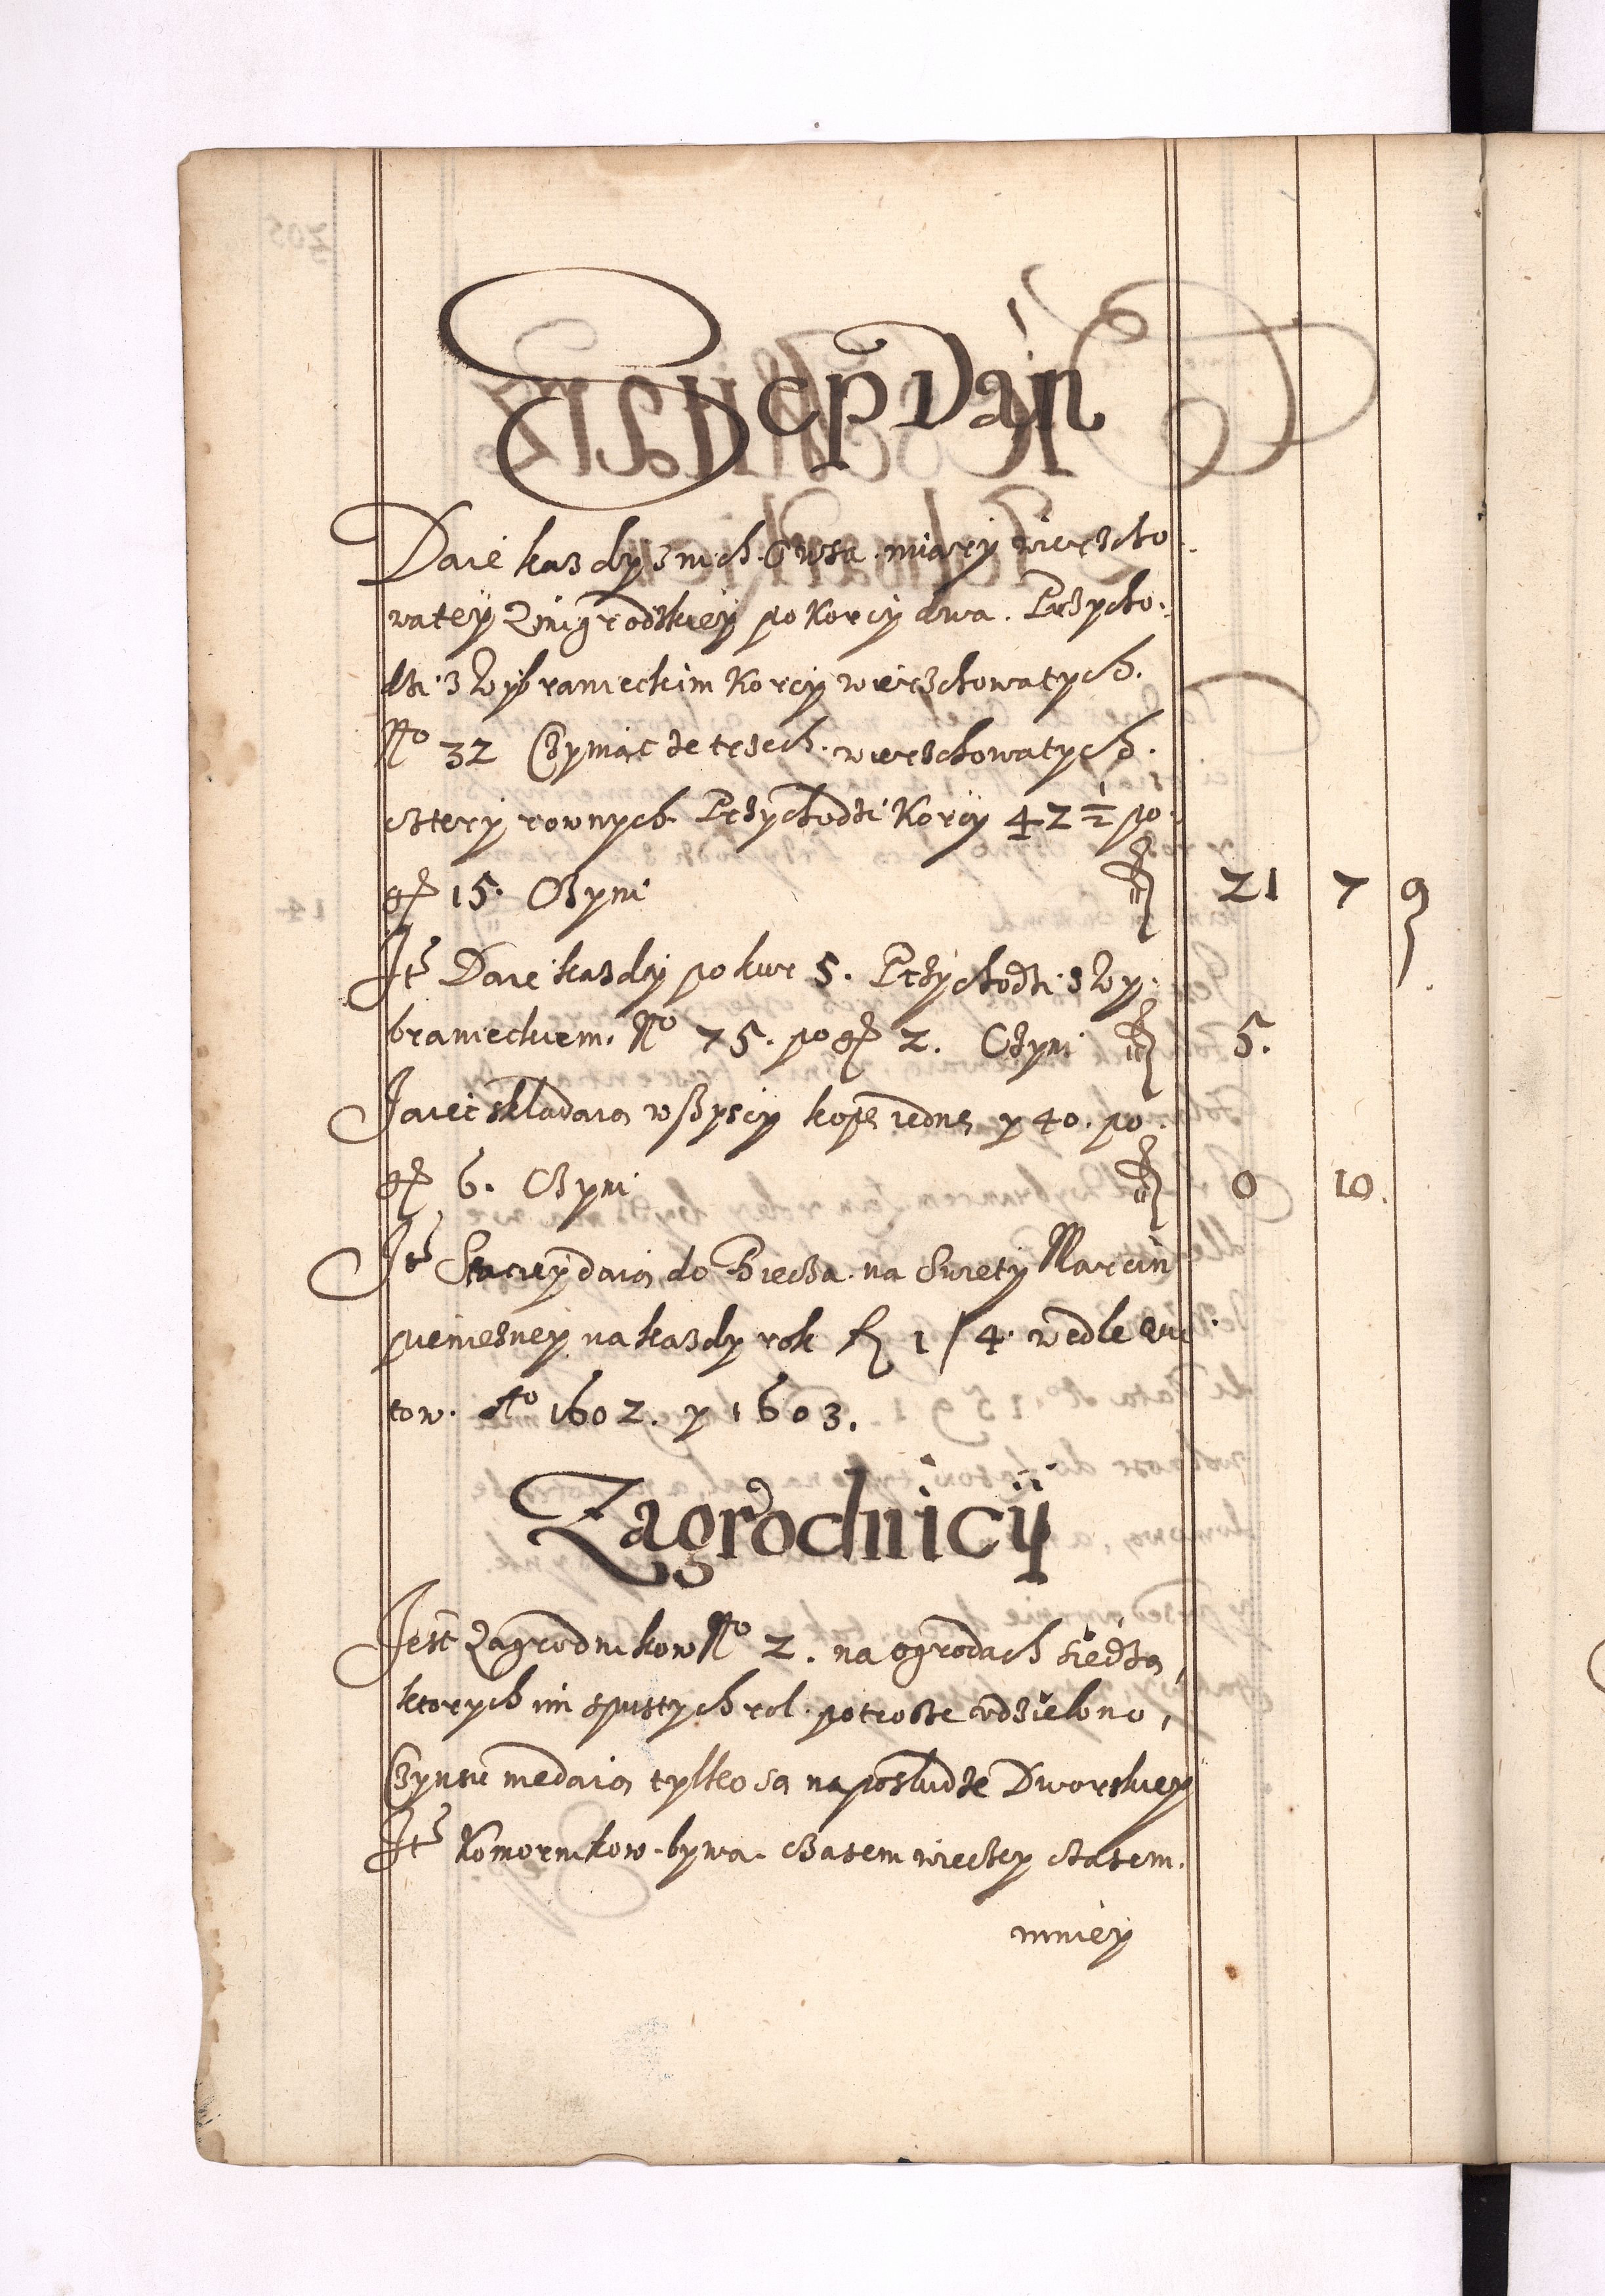 Sep Dań
Daie kazdy z nich Owsa miary wierzcho
watey Zmigrodzkiey po Korcy dwa. Przycho
dzi z Wybranieckim Korcy wierzchowatych
No 32 Czyniąc ze trzech wierzchowatych
cztery rownych Przychodzi Korcy 42 1/2 po
gr 15. Czyni fl 21 7 9
Itē Daie kazdy po kur 5. Przychodzi z Wy
branieckiem. No 75. po gr 2. Czyni fl 5.
Jaiec składaią wszyscy kopę iednę y 40. po
gr 6. Czyni fl 0 10.
Itē Stacyey daią do Biecza na Swiety Marcin
pieniezney na kazdy rok fl 1/4 wedle
tow. Ao 1602. y 1603.
Zagrodnicy
Jest Zagrodnikow No 2. na ogrodach siedzą,
ktorych im spustych rol potrosze udzielono,
Czynszu niedaią tylko są na posłudze Dworskiey
Itē Komornikow bywa czasem wiecey czasem
mniey